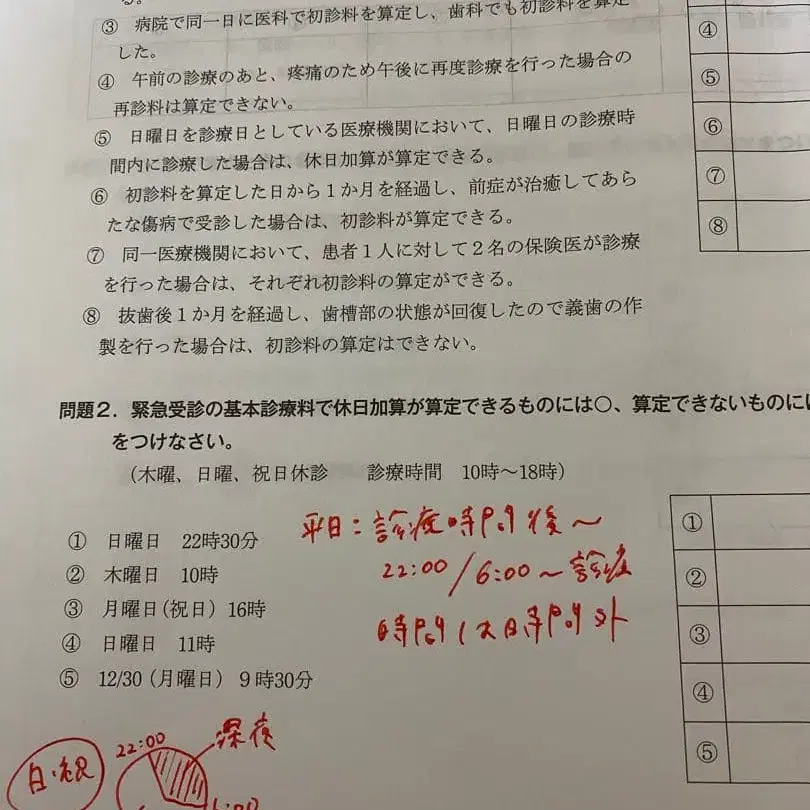 る。
③ 病院で同一日に医科で初診料を算定し、歯科でも初診料を算定
した。
④ 午前の診療のあと、疼痛のため午後に再度診療を行った場合の
再診料は算定できない。
⑤ 日曜日を診療日としている医療機関において、日曜日の診療時
間内に診療した場合は、休日加算が算定できる。
⑥ 初診料を算定した日から1か月を経過し、前症が治癒してあら
たな傷病で受診した場合は、初診料が算定できる。
⑦ 同一医療機関において、患者1人に対して2名の保険医が診療
を行った場合は、それぞれ初診料の算定ができる。
⑧ 抜歯後1か月を経過し、歯槽部の状態が回復したので義歯の作
製を行った場合は、初診料の算定はできない。
④
⑤
⑥
⑦
⑧
問題2. 緊急受診の基本診療料で休日加算が算定できるものには○、算定できないものに
をつけなさい。
(木曜、日曜、祝日休診 診療時間 10時~18時)
① 日曜日 22時30分
② 木曜日 10時
③ 月曜日(祝日) 16時
④ 日曜日 11時
⑤ 12/30(月曜日) 9時30分
平日:診療時間後~
22:00/6:00~診療
時間は時間外
①
②
③
④
⑤
日・祝
22:00
深夜
6:00